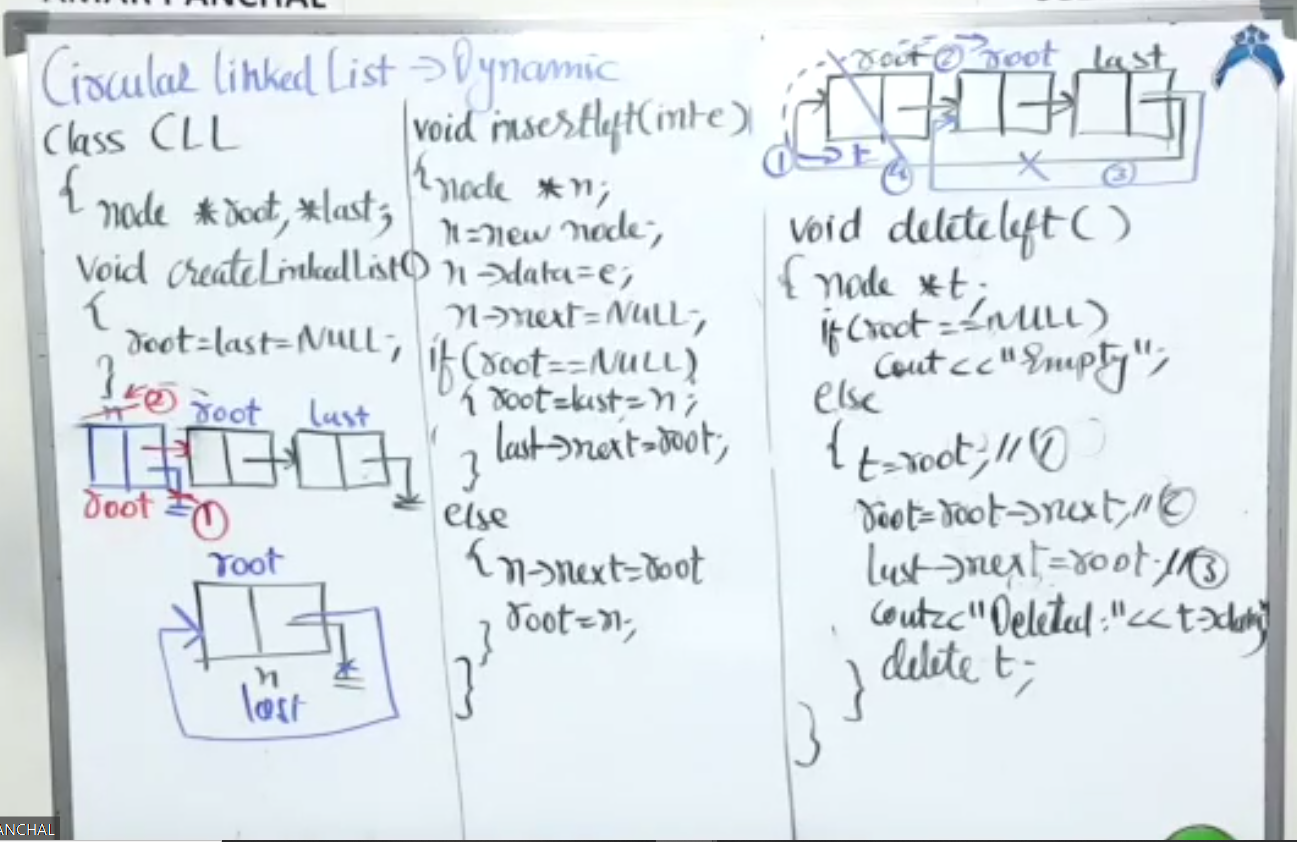 Circular linked List → Dynamic
Class CLL
{ node *root, *last;
void createLinkedList()
{
root=last=NULL;
}
n ②
root last
root ①
root
n
last
void insertleft(int e)
{ node *n;
n=new node;
n→data=e;
n→next=NULL;
if(root==NULL)
{ root=last=n;
last→next=root;
}
else
{ n→next=root
root=n;
}
}
root ② root last
① t ④ ③
void deleteleft()
{ node *t;
if(root==NULL)
cout<<"Empty";
else
{ t=root; //①
root=root→next; //②
last→next=root; //③
cout<<"Deleted:"<<t→data;
delete t;
}
}
ANCHAL